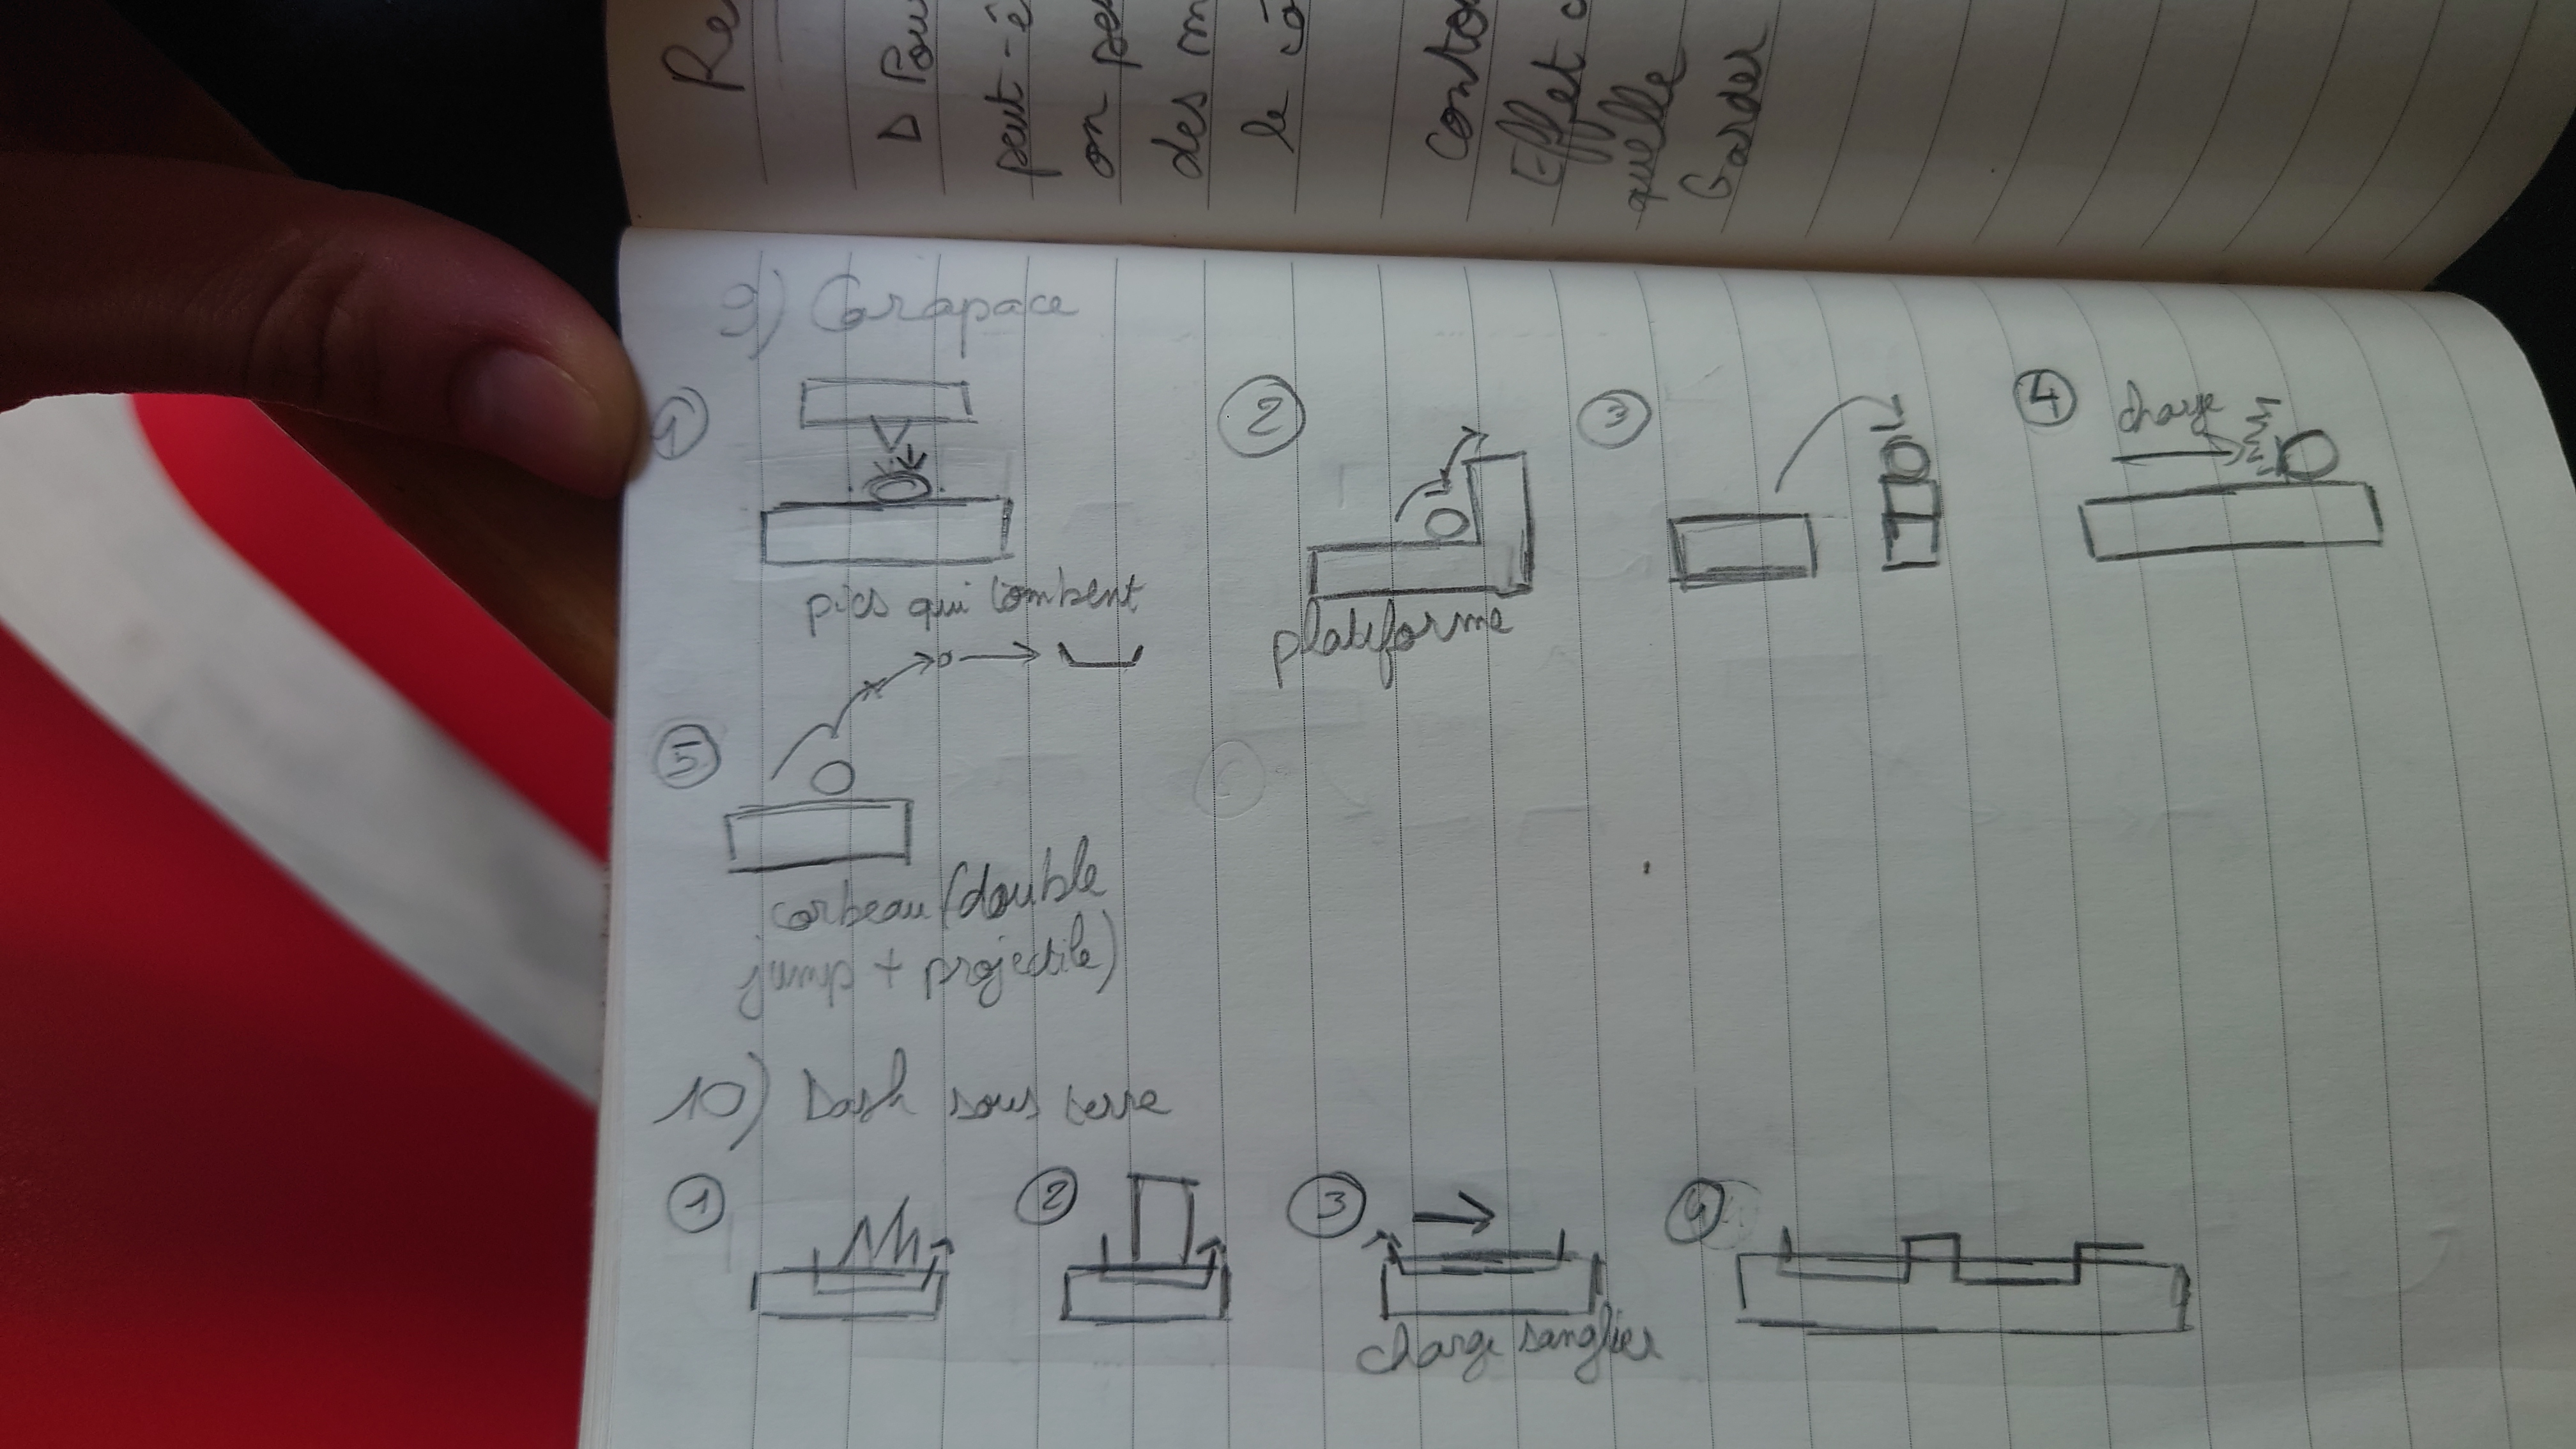 Re
D Pour
peut-ê
on pe
des m
le cô
conto
Effet c
quelle
Garder
9) Carapace
1
2
3
4 charge
pics qui tombent
plateforme
5
corbeau (double
jump + projectile)
10) Dash sous terre
1
2
3
4
charge sanglier